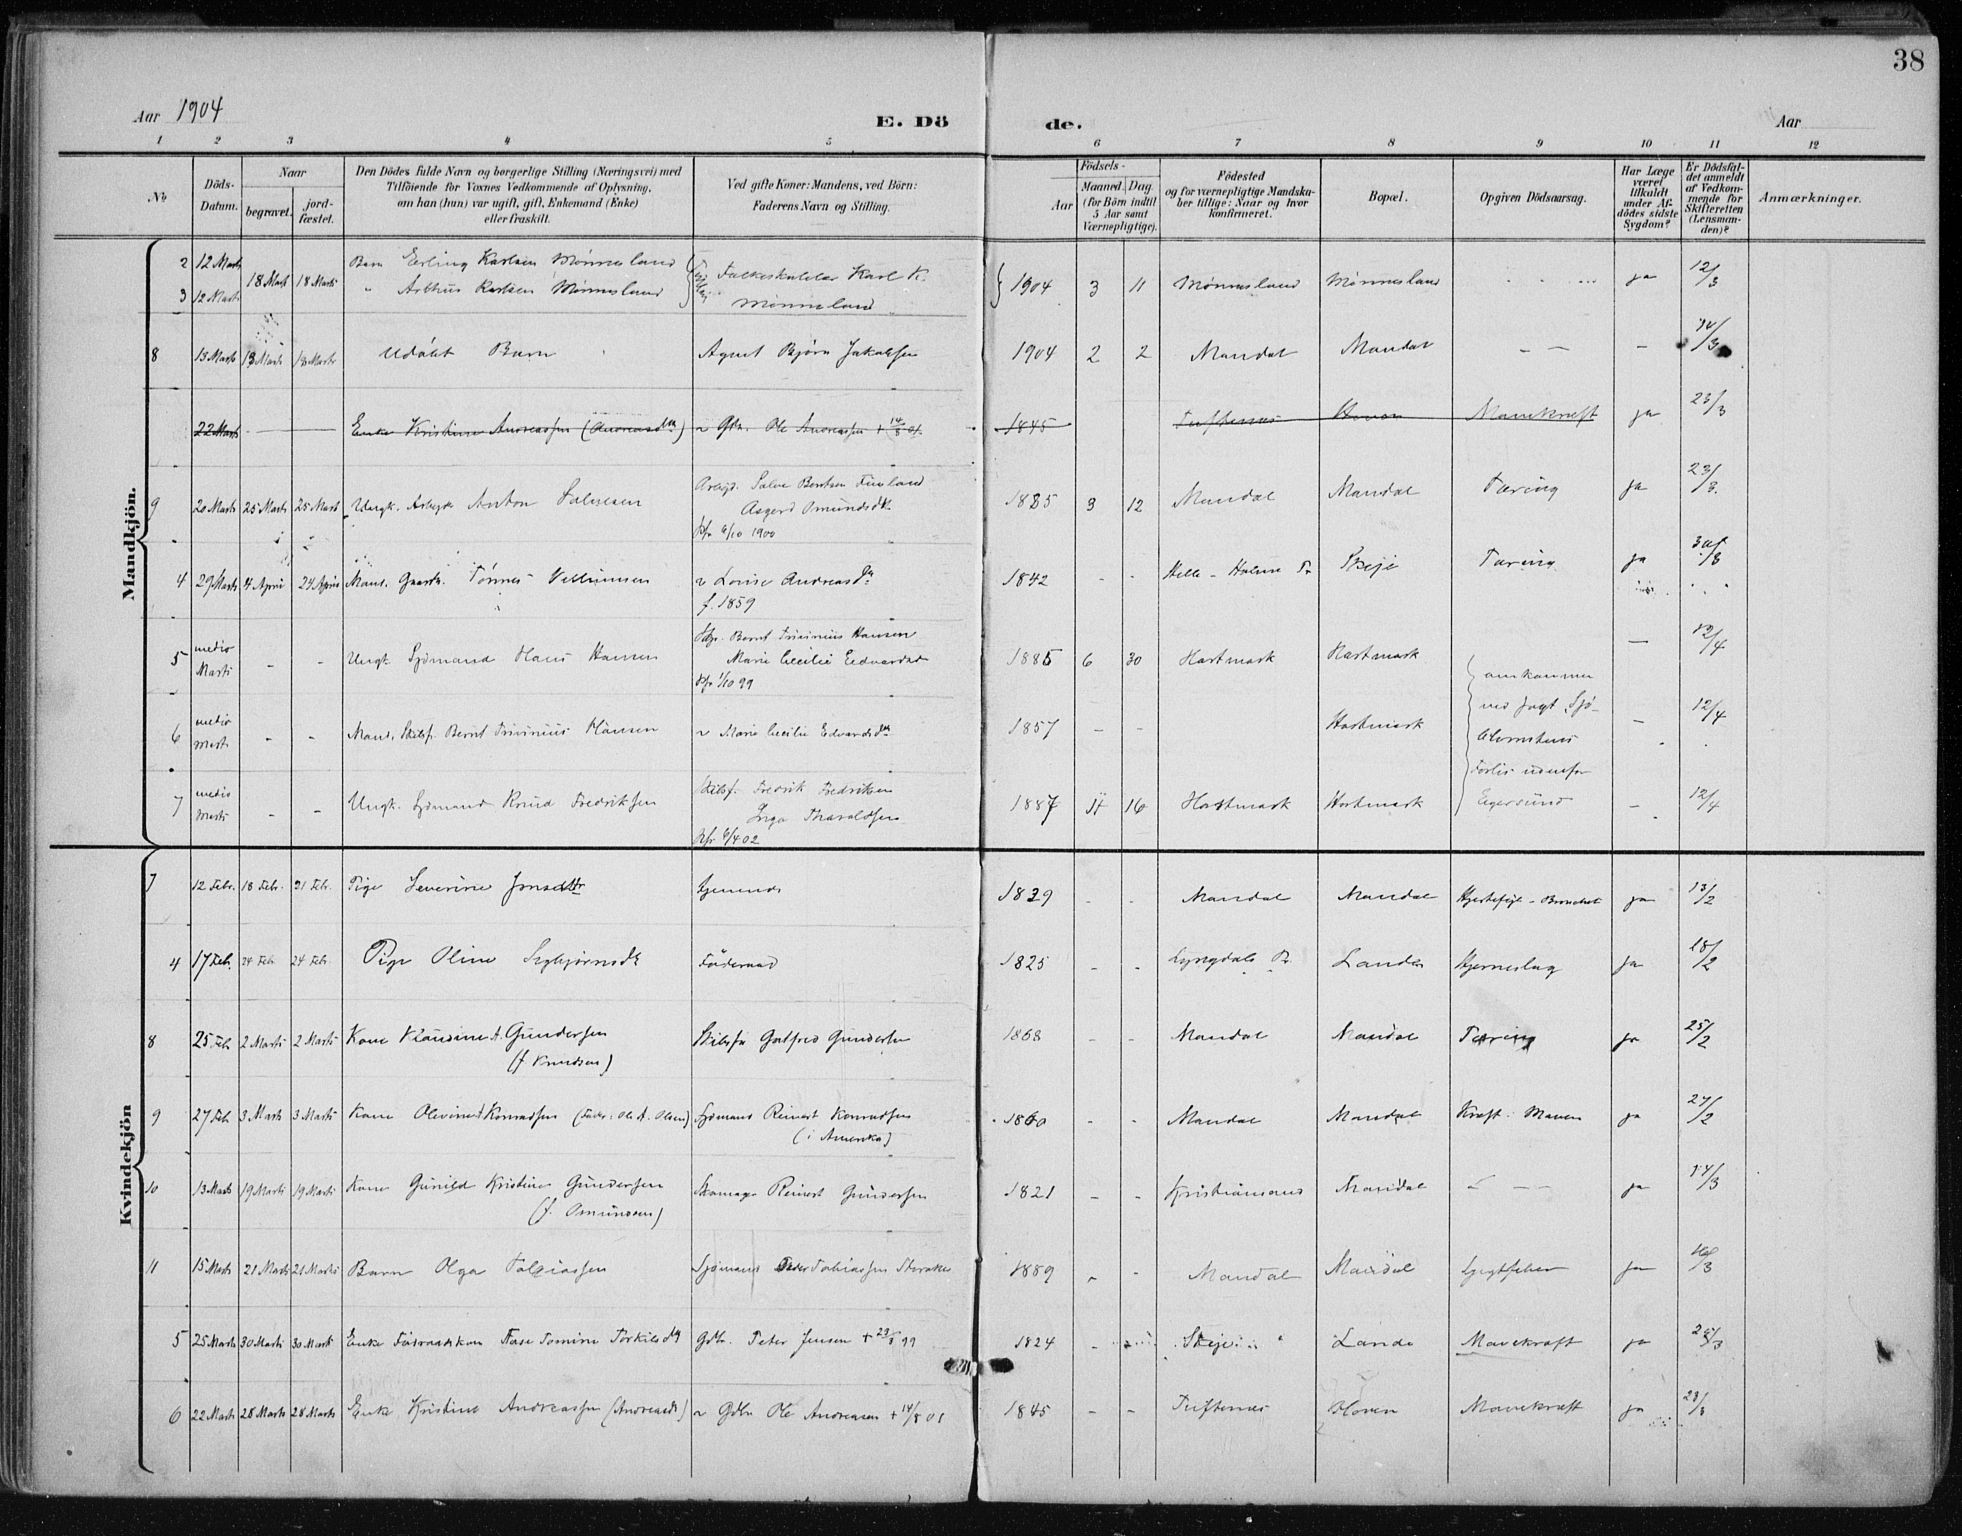 38
Aar 1904
E. Döde.
Aar
1 2 3 4 5 6 7 8 9 10 11 12
No.
Döds-Datum.
Naar
begravet.
jordfæstet.
Den Dödes fulde Navn og borgerlige Stilling (Næringsvei) med
Tilföiende for Voxnes Vedkommende af Oplysning,
om han (hun) var ugift, gift, Enkemand (Enke)
eller fraskilt.
Ved gifte Koner: Mandens, ved Börn:
Faderens Navn og Stilling.
Födsels-
Aar
Maaned. Dag.
(for Börn indtil
5 Aar samt
Værnepligtige).
Födested
og for værnepligtige Mandska-
ber tillige: Naar og hvor
konfirmeret.
Bopæl.
Opgiven Dödsaarsag.
Har Læge
været
tilkaldt
under Af-
dödes sidste
Sygdom?
Er Dödsfal-
det anmeldt
af Vedkom-
mende for
Skifteretten
(Lensman-
den)?
Anmærkninger.
Mandkjön.
2 12 Marts 18 Marts 18 Marts Barn Erling Karlsen Mönnesland Karl K. 1904 3 11 Mønnesland Mønnesland ja 12/3
3 12 Marts " Arthur Karlsen Mønnesland Mønnesland
8 13 Marts 18 Marts 18 Marts Udöbt Barn Agent Bjørn Jakobsen 1904 2 2 Mandal Mandal — — —
22 Marts — — Enke Kristine Andreassen (Andreasdtr) Gbr. Ole Andreassen + 14/8 01 1845 Tuftenes Mavekræft ja 23/3
9 20 Marts 25 Marts 25 Marts Ungk. Arbeyder Anton Salvesen Salve Berntsen Finland 1885 3 12 Mandal Mandal Tæring ja 23/3
Asgerd Omundsdtr
Kfr 6/10 1900
4 29 Marts 4 April 24 April Mand. Gaardbr. Tönnes Villumsen Louise Andreasdtr 1842 - - Helle - Halsaa Pr Skeje Tæring ja 30/3
f. 1859
5 medio Marts - - Ungk. Sjömand Hans Hansen Bernt Severinius Hansen 1885 6 30 Hartmark Hartmark — 12/4
Marie Cecilie Edvardsd
Kfr 1/10 99
6 medio Marts - - Mand, Skibsf. Bernt Hansen Marie Cecilie Edvardsdtr 1857 - - Hartmark omkommen — 12/4
ved Jagt
7 medio Marts - - Ungk. Sjömand Knud Fredriksen Skibsf. Fredrik Fredriksen 1887 16 Hartmark Hartmark Forlis udenfor — 12/4
Inga Tharaldsen Egersund
Kfr 6/4 02
Kvindekjön
7 12 Febr. 18 Febr. 21 Febr. Pige Severine 1829 - - Mandal Mandal ja 13/2
4 17 Feb. 24 Feb. 24 Febr. Pige Oline Föderaad 1825 - - Lyngdals Pr. Lande Hjerneslag ja 18/2
8 25 Feb 2 Marts 2 Marts Kone Klausine A. Gundersen Skibsfr Gotfred Gundersen 1868 - - Mandal Mandal Tæring ja 25/2
(f. Knudsen)
9 27 Feb 3 Marts 3 Marts Kone Olevine Konradsen (Fader: Ole A. Olsen) Sjömand Reinert Konradsen 1860 - - Mandal Mandal Kræft i Maven ja 27/2
(i Amerika)
10 13 Marts 19 Marts 19 Marts Kone Gunild Kristine Gundersen Skomager Reinert Gundersen 1821 - - Kristiansand Mandal — — ja 14/3
(f. Omundsen)
11 15 Marts 21 Marts 21 Marts Barn Olga Tobiassen Sjömand Peder Tobiassen 1889 - - Mandal Mandal Gigtfeber ja 16/3
5 25 Marts 30 Marts 30 Marts Enke Föderaadskone Aase Tomine Torkilsdtr Gdbr. Peter Jensen + 1824 - - Skeje Lande Mavekræft ja
6 22 Marts 28 Marts 28 Marts Enke Kristine Andreassen (Andreasdtr) Gdbr Ole Andreassen + 14/8 01 1845 - - Tuftenes Mavekræft ja 23/3